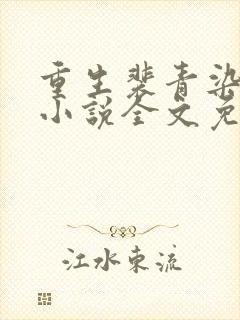 重生裴青染
小说全文免
江水东流